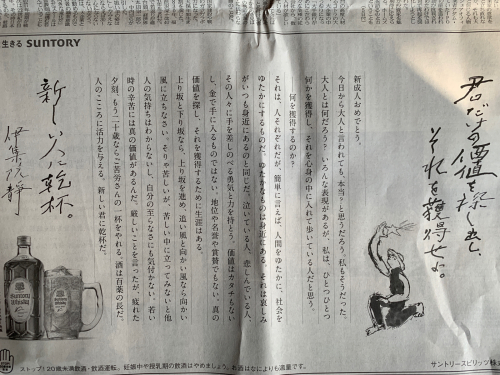 生きる SUNTORY
君だけの価値を探し出し、
それを獲得せよ。
新成人おめでとう。
今日から大人と言われても、本当？と思うだろう。私もそうだった。
大人とは何だろう？いろんな表現があるが、私は、ひとつひとつ
何かを獲得し、それを心身の中に入れて歩いている人だと思う。
──何を獲得するのか？
それは、人それぞれだが、簡単に言えば、人間をゆたかに、社会を
ゆたかにするものだ。ゆたかなものは身近にある。それは哀しみ
がいつも身近にあるのと同じだ。泣いている人、悲しんでいる人、
その人々に手を差しのべる勇気と力を持とう。価値はカタチもない
し、金で手に入るものではない。地位や名誉や賞賛でもない。真の
価値を探し、それを獲得するために生涯はある。
上り坂と下り坂なら、上り坂を進め。追い風と向かい風なら向かい
風に立ちなさい。そりゃ苦しいが、苦しい中に立ってみないと他
人の気持ちはわからないし、自分の至らなさにも気付かない。若い
時の辛苦には真の価値があるんだ。厳しいことを言ったが、疲れた
夕刻、もう二十歳ならご苦労さんの一杯をやれる。酒は百薬の長だ。
人のこころに活力を与える。新しい君に乾杯だ。
新しい人に乾杯。
伊集院静
SUNTORY
ストップ！20歳未満飲酒・飲酒運転。妊娠中や授乳期の飲酒はやめましょう。お酒はなによりも適量です。
サントリースピリッツ株